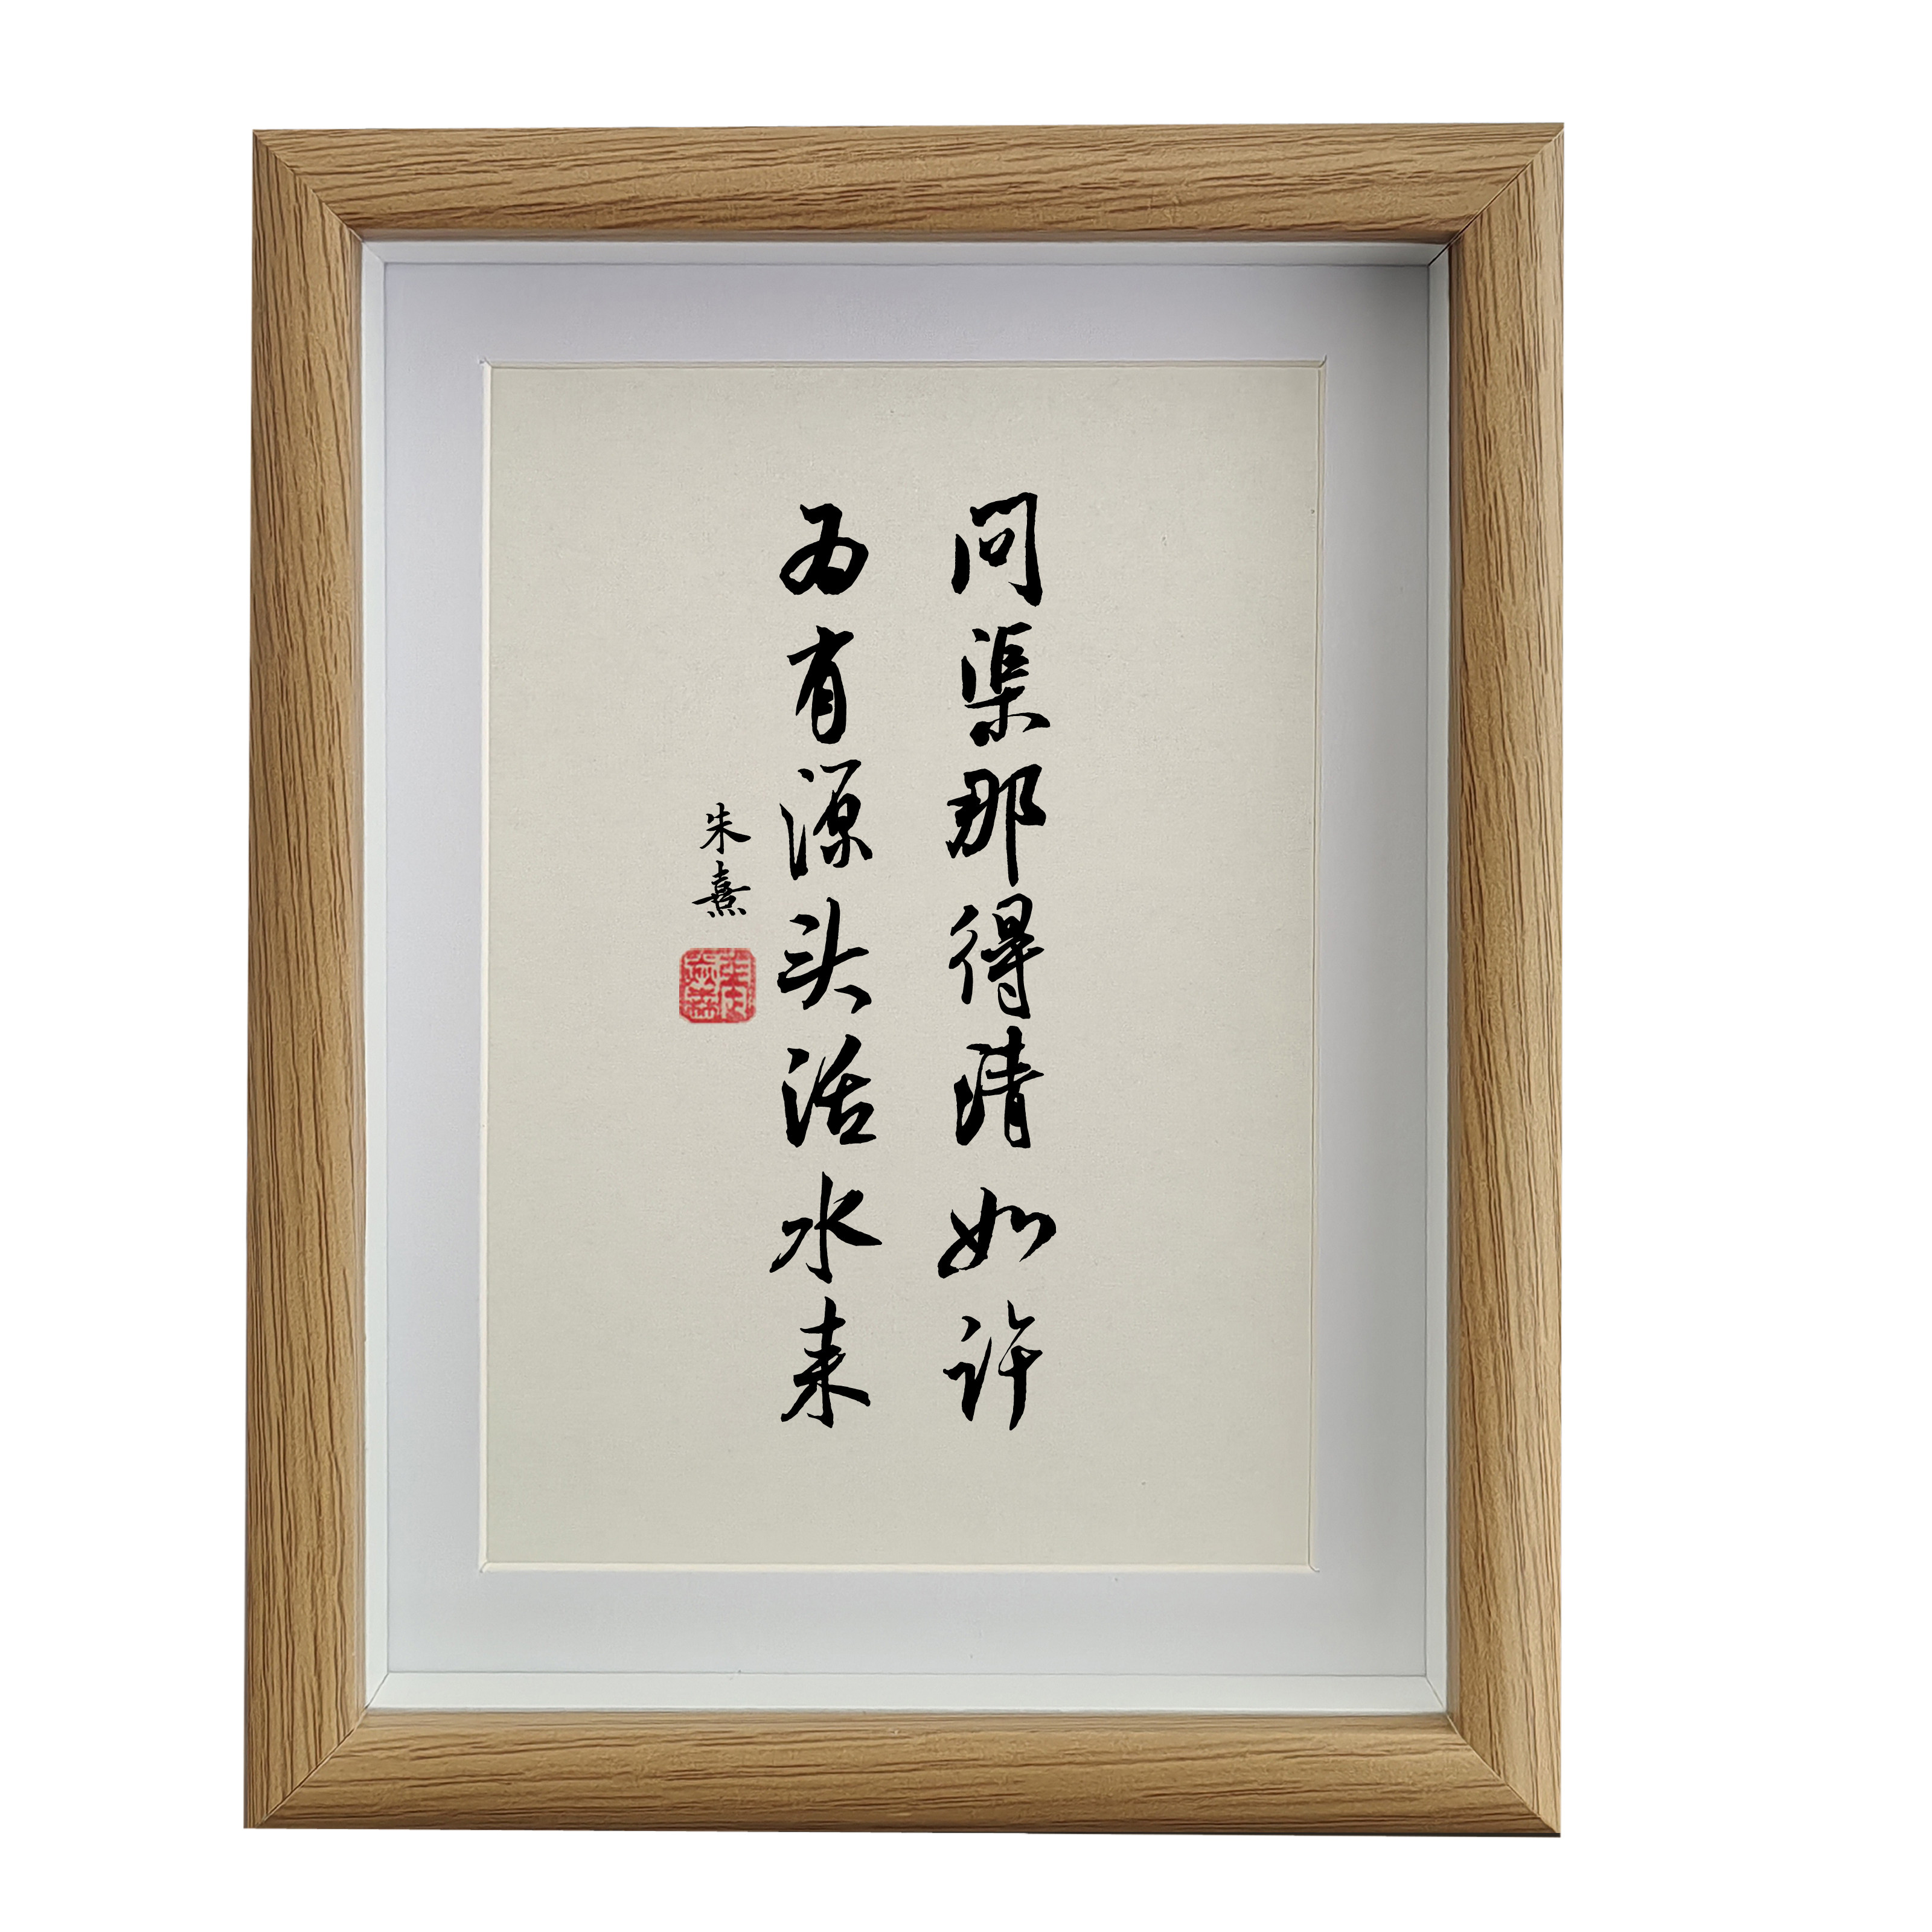 问渠那得清如许
为有源头活水来
朱熹